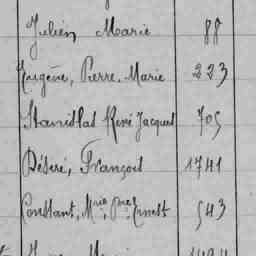 Julien Marie 88
Eugène, Pierre, Marie 223
Stanislas René Jacques 705
Désiré, François 1741
Constant, Mrie, Pre, Ernest 543